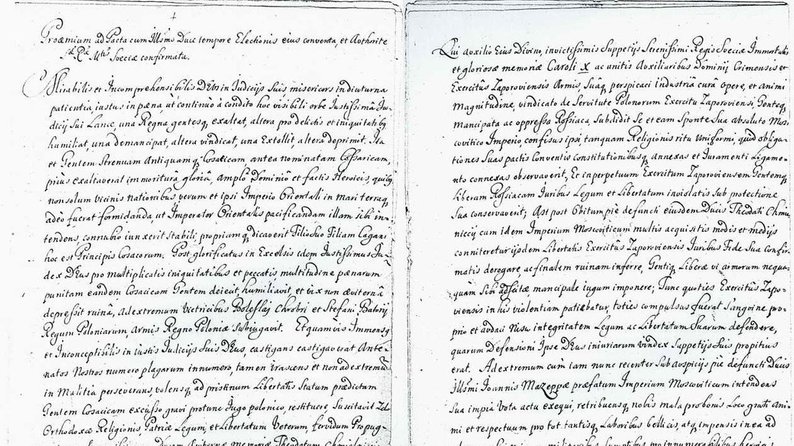 4
Proæmium ad Pacta cum Illmo Duce tempore Electionis eius conventa, et Authte
Rgis Mtis Sveciæ confirmata.
Mirabilis et Incomprehensibilis DEus in Iudicijs Suis misericors in diuturna
patientia, iustus in pæna ut continuo â condito hoc visibili orbe Iustissimâ Iu-
dicij Sui Lance, una Regna gentesq; exaltat, altera pro delictis et iniquitatib9
humiliat, una demancipat, altera vindicat, una Extollit, altera deprimit. Ita
et Gentem Strenuam Antiquamq; Cosacicam, antea nominatam Cossaricam,
prius exaltaverat immoritura gloria, amplo Dominio et factis Heroicis, quib9
non solum vicinis nationibus verum et ipsi Imperio Orientali in mari terraq;
adeo fuerat formidanda, ut Imperator Orientalis pacificandam illam sibi in-
tendens, connubio iunxerit stabili, propriamq; dicaverit Filio Suo Filiam Cagani
hoc est Principis Cosacorum. Post glorificatus in Excelsis idem Iustissimus Iu-
dex DEus pro multiplicatis iniquitatibus et peccatis multitudine pænarum
punitam eandem Cosacicam Gentem deiecit, humiliavit, et vix non æuiterna
depressit ruina, Ad extremum Vetricibus Boleslaj Chrobri et Stefani Batorij
Regum Poloniarum Armis Regno Poloniæ Subiugavit. Et quamvis Immensg
et Inconceptibilis in Iustis Iudicijs Suis DEus, castigans castigaverat Ante-
natos Nostros numero plagarum innumero, tamen Irascens et non ad extremum
in Malitia perseverans, volens, ad pristinum Libertatis Statum prædictam
Gentem Cosacicam excusso gravi pro tunc Iugo polonico, restituere, Suscitavit Zelo-
Orthodoxæ Religionis Patriæ Legum, et Libertatum Veterum ferodum Propug-
Theodatum Chmielnicium
Qui auxilio Eius Divino, invictissimis Suppetijs Serenissimi Regis Sveciæ Immortalis
et gloriosæ memoriæ Caroli X ac unitis Auxiliaribus Dominij Crimensis et
Exercitus Zaporoviensis Armis Suaq; perspicaci industria cura opere, et animi
Magnitudine, vindicato de Servitute Polonorum Exercitu Zaporoviensi, Genteq;
mancipata ac oppressa Rossiaca Subdidit Se et eam Sponte Sua absoluto Mos-
covitico Imperio confisus ipsi tanquam Religionis ritu Uniformi, quod obliga-
tiones Suas pactis Conventis Constitutionibus annexas et Iuramenti Ligamento
connexas observaverit, Et in perpetuum Exercitum Zaporoviensem Gentemq;
liberam Rossiacam Iuribus Legum et Libertatum inviolatis Sub protectione
Sua conservaverit; Ast post Obitum piè defuncti eiusdem Ducis Theodati Chmiel-
niccij cum idem Imperium Moscoviticum multis acquisitis modis et medijs
conniteretur ijsdem Libertatis Exercitus Zaporoviensis Iuribus Fide Sua confir-
matis derogare ac finalem ruinam inferre, Gentiq; Liberæ vi armorum nequa-
quam Sibi mancipale iugum imponere; Tunc quoties Exercitus Zapo-
roviensis in his violentiam patiebatur, toties compulsus fuerat Sanguine pro-
prio et audaci Nisu integritatem Legum ac Libertatum Suarum defendere,
quarum Defensioni Ipse DEus iniuriarum vindex Suppetijs Suis propitius
erat. Ad extremum cum iam nunc recenter Sub Auspicijs piè defuncti Ducis
Illmi Ioannis Mazeppæ præfatum Imperium Moscoviticum intendens
Sua impia Vota actu exequi, retribuensq; nobis mala pro bonis Loco grati Ani-
mi et respectuum pro tot tantisq; Laboribus bellicis, atq; impensis in ea ad